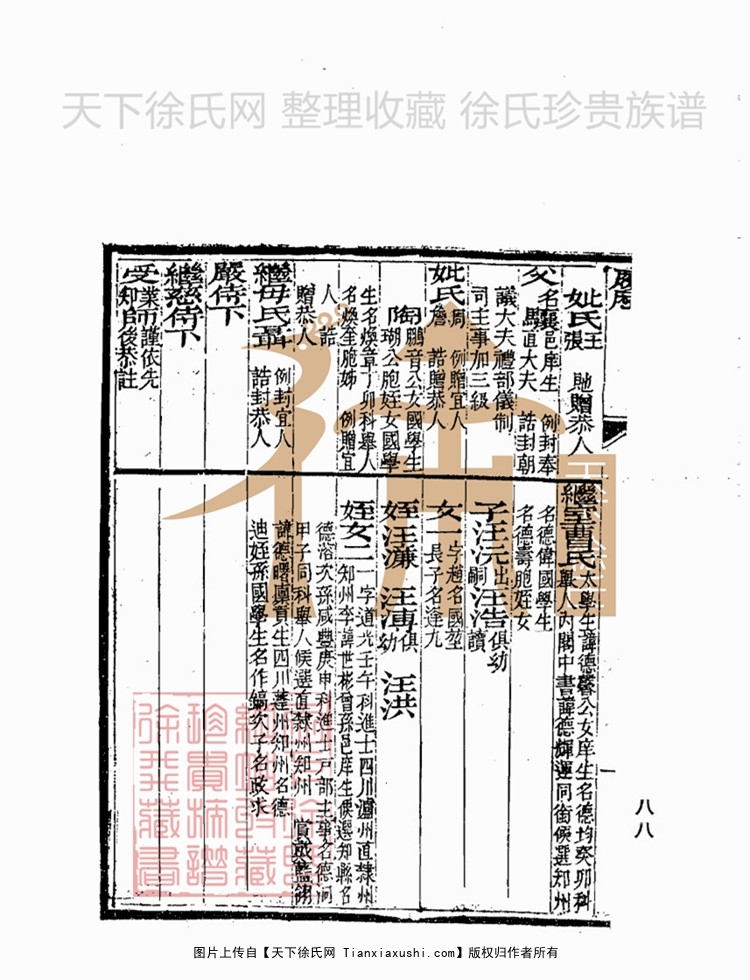 天下徐氏网 整理收藏 徐氏珍贵族谱
妣氏王張 貤贈恭人
父名驤邑庠生 例封奉
直大夫 誥封朝
議大夫禮部儀制
司主事加三級
妣氏周 例贈宜人
詹 誥贈恭人
陶鵬音公女國學生
瑚公胞姪女國學
生名煥章丁卯科舉人
名煥奎胞姊 例贈宜
人 誥
贈恭人
繼母氏聶 例封宜人
誥封恭人
嚴侍下
繼慈侍下
受業而謹依先
知師後恭註
繼室曹氏太學生諱德馨公女庠生名德均癸卯科
舉人內閣中書諱德輝運同銜候選知州
名德偉國學生
名德壽胞姪女
子汪沅出嗣 汪浩俱幼讀
女一字趙名國堃
長子名逢九
姪汪濂 汪溥俱幼 汪洪
姪女二一字道光壬午科進士四川瀘州直隸州
知州李諱世彬曾孫邑庠生候選知縣名
德溶次孫咸豐庚申科進士戶部主事名德泂
甲子同科舉人候選直隸州知州 賞戴藍翎
諱德曙廪貢生四川蓬州知州名德
迪姪孫國學生名作鎬次子名政求
八八
图片上传自【天下徐氏网 Tianxiaxushi.com】版权归作者所有